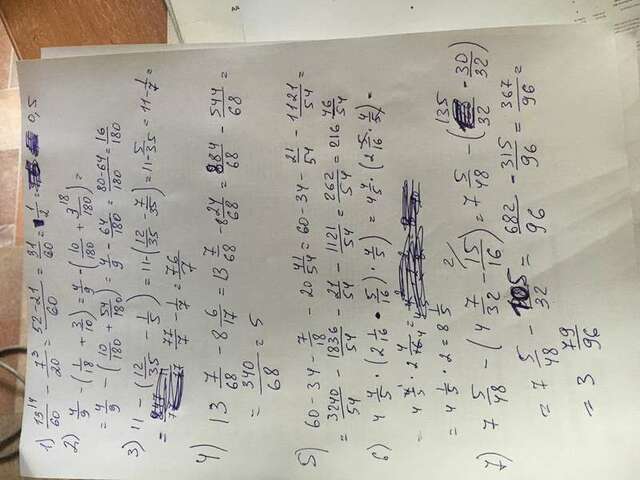 1) 13¹⁴/60 - 7³/20 = 52-21/60 = 31/60 = 1/2 = 0,5
2) 4/9 - (1/18 + 3/10) = 4/9 - (10/180 + 3¹⁸/180) =
= 4/9 - (10/180 + 54/180) = 4/9 - 64/180 = 80-64/180 = 16/180
3) 11 - (12/35 - 1/5) = 11 - (12/35 - 7/35) = 11 - 5/35 = 11 - 1/7 =
= 77/7 - 1/7 = 76/7
4) 13 7/68 - 8 6/17 = 13 7/68 - 8 24/68 = 884/68 - 544/68 =
= 340/68 = 5
5) 60 - 34 - 7/18 - 20 41/54 = 60 - 34 - 21/54 - 1121/54 =
= 3240/54 - 1836/54 - 21/54 - 1121/54 = 262/54 = 216 46/54
6) 4 4/5 · (2 1/16 · 5/16) · 4/5) = 4 4/5 · (2 5/16 · 4/5) =
= 4 4/5 · 2 4/16 =
= 4 1/5 · 2 = 8 1/5
7) 7 5/48 - (4 7/32 - 15/16) = 7 5/48 - (135/32 - 30/32)
= 7 5/48 - 105/32 = 682/96 - 315/96 = 367/96 =
= 3 79/96